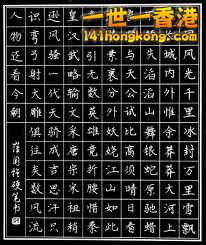 一世一香港
141hongkong.com
风光千里冰封万里雪飘
城内外惟余莽莽大河上
失滔滔山舞银蛇原驰蜡
与天公试比高须晴日看
素裹分外妖娆江山如此
引无数英雄竞折腰惜秦
皇汉武略输文采唐宗宋祖稍
逊风骚一代天骄成吉思汗只
识弯弓射大雕俱往矣数风流
人物还看今朝
国强硬笔书